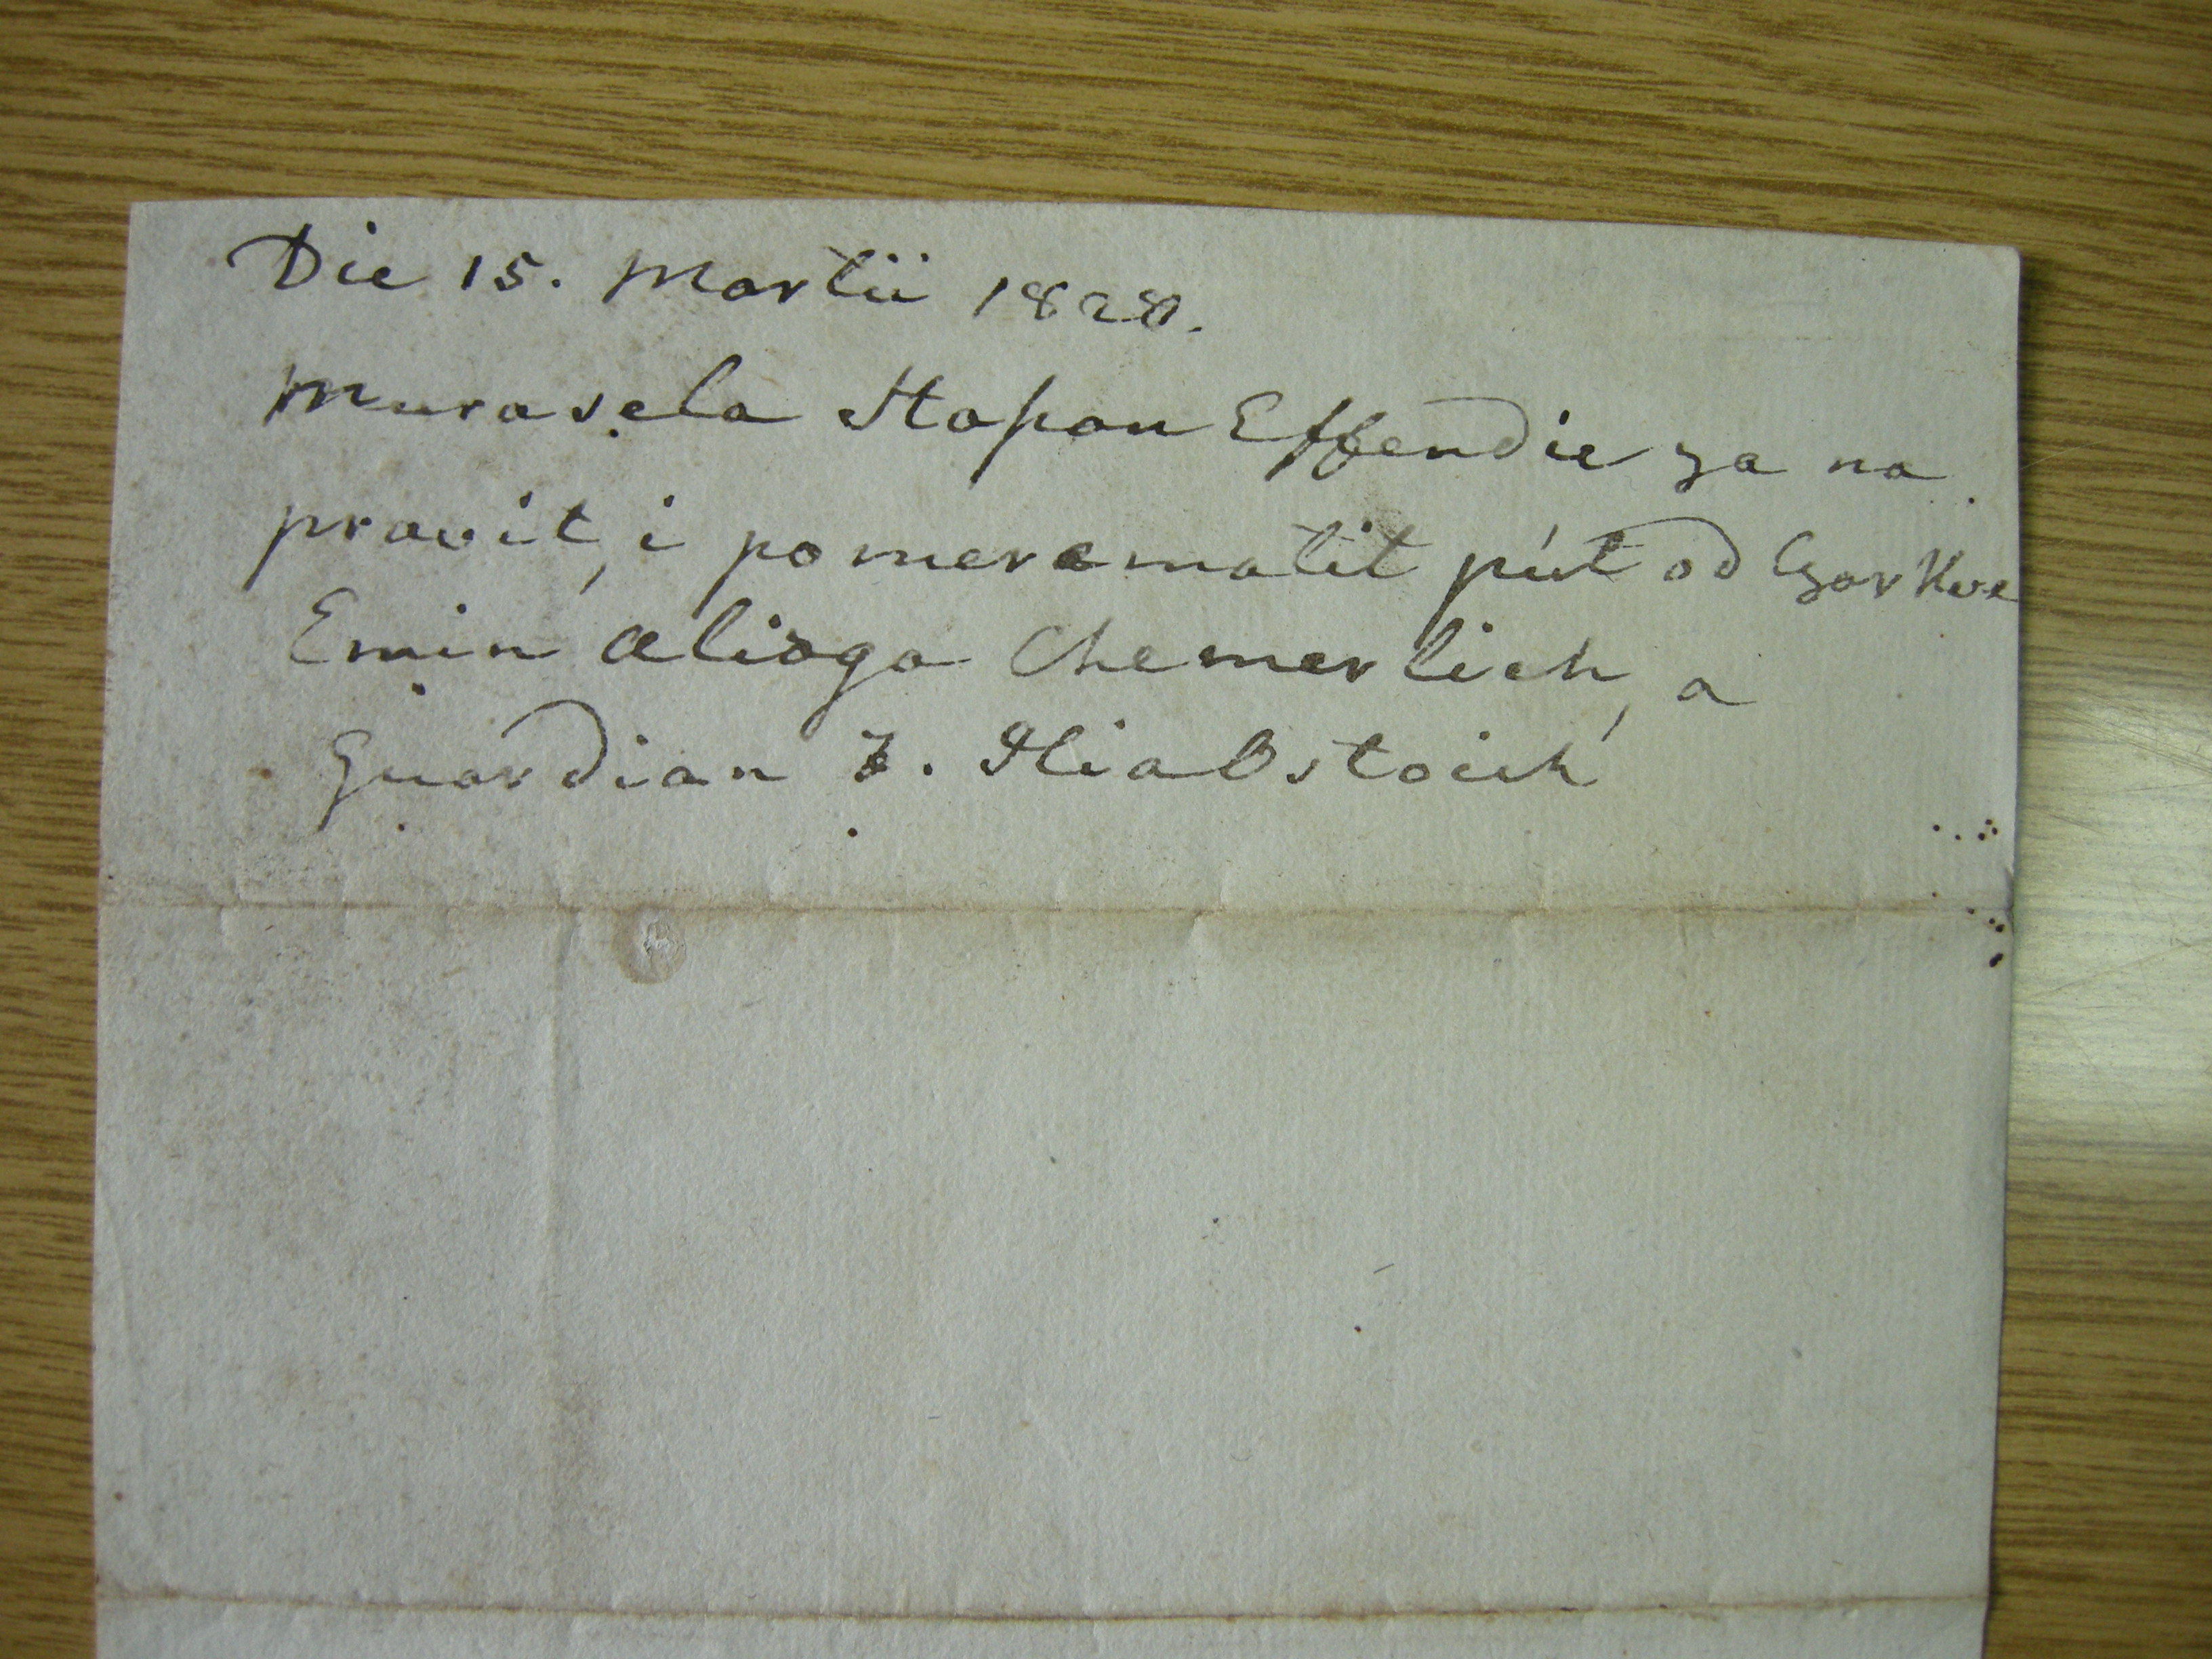 Die 15. Martii 1820.
Murasela Hapan Effendie za na
pravit, i pomeremetit pút od Czarkve
Emin Aliaga Chemerlich, a
Guardian F. Ilia Ostoich